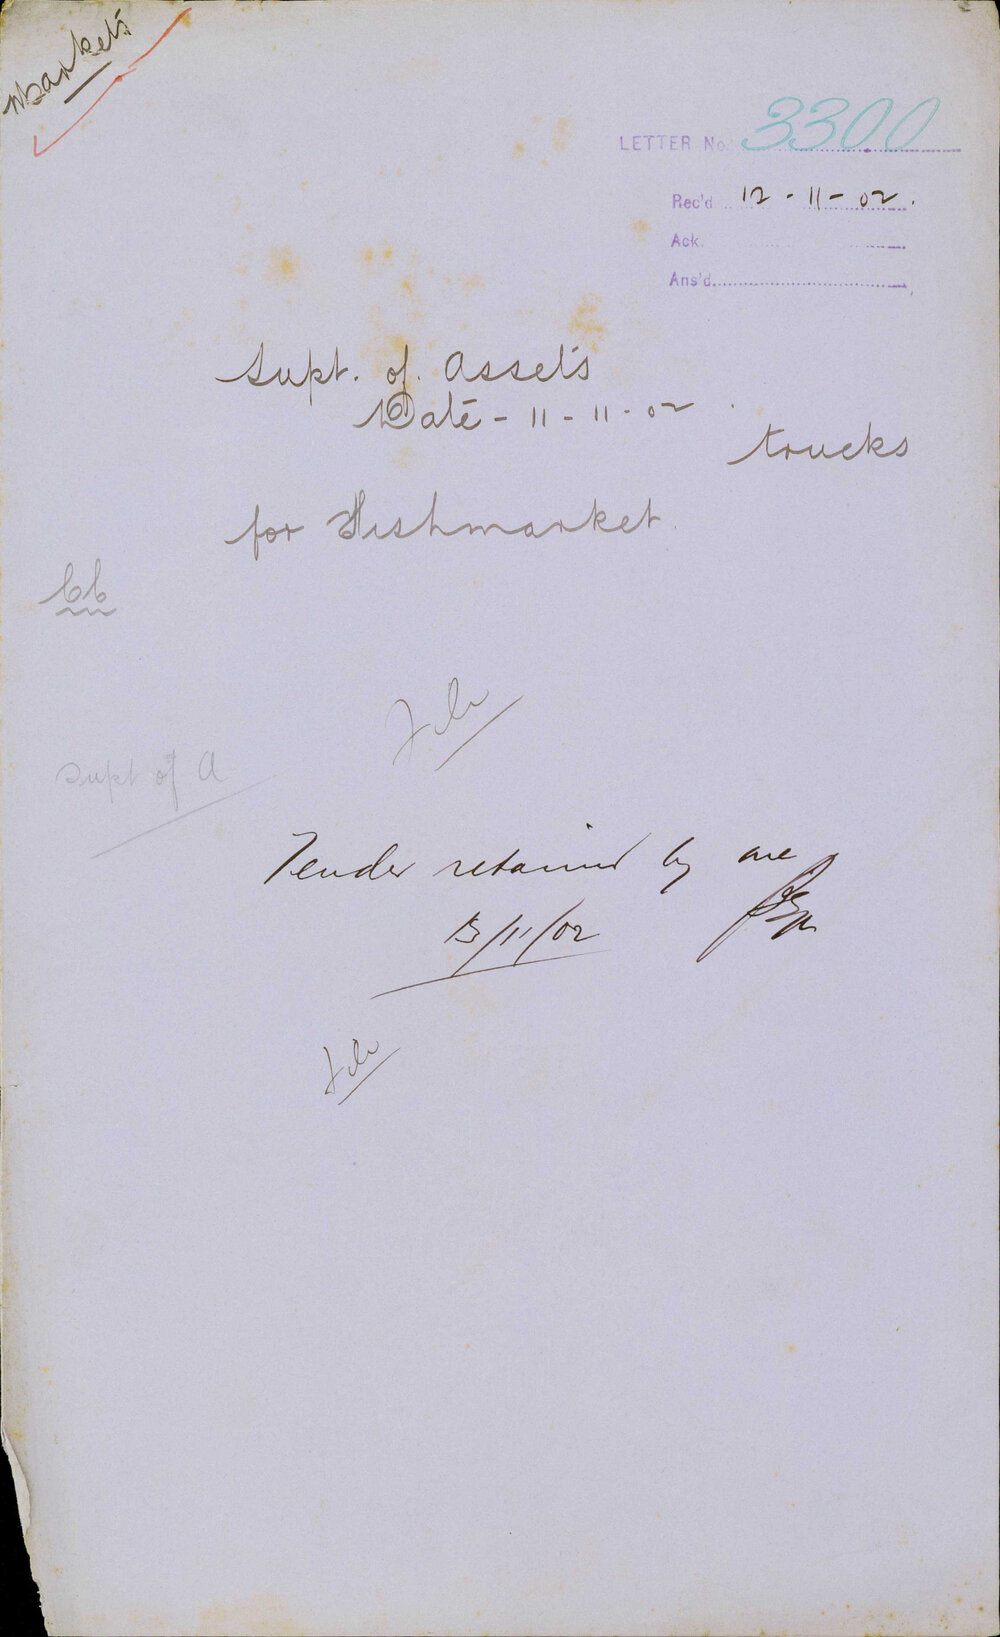 Markets
LETTER No. 3300
Rec'd 12-11-02.
Ack.
Ans'd.
Supt. of Assets
Date - 11-11-02.
trucks
for Fishmarket.
File
Supt of A
Tender retained by me
13/11/02
File